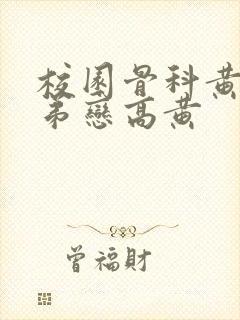 校園骨科黃
弟戀高黃
曾福財